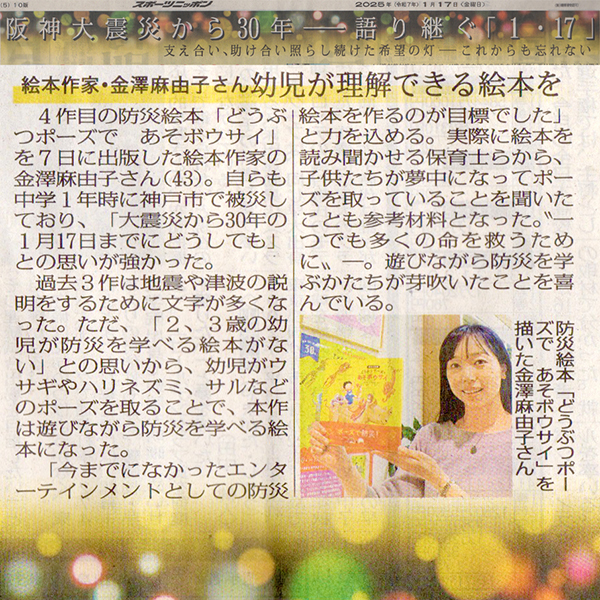 (5) 10版
スポーツニッポン
2025年(令和7年)1月17日(金曜日)
阪神大震災から30年――語り継ぐ「1・17」
支え合い、助け合い照らし続けた希望の灯――これからも忘れない
絵本作家・金澤麻由子さん幼児が理解できる絵本を
４作目の防災絵本「どうぶ
つポーズで　あそボウサイ」
を７日に出版した絵本作家の
金澤麻由子さん(43)。自らも
中学１年時に神戸市で被災し
ており、「大震災から30年の
１月17日までにどうしても」
との思いが強かった。
過去３作は地震や津波の説
明をするために文字が多くな
った。ただ、「２、３歳の幼
児が防災を学べる絵本がな
い」との思いから、幼児がウ
サギやハリネズミ、サルなど
のポーズを取ることで、本作
は遊びながら防災を学べる絵
本になった。
「今までになかったエンタ
ーテインメントとしての防災
絵本を作るのが目標でした」
と力を込める。実際に絵本を
読み聞かせる保育士らから、
子供たちが夢中になってポー
ズを取っていることを聞いた
ことも参考材料となった。〝一
つでも多くの命を救うため
に〟―。遊びながら防災を学
ぶかたちが芽吹いたことを喜
んでいる。
防災絵本「どうぶつポー
ズで　あそボウサイ」を
描いた金澤麻由子さん